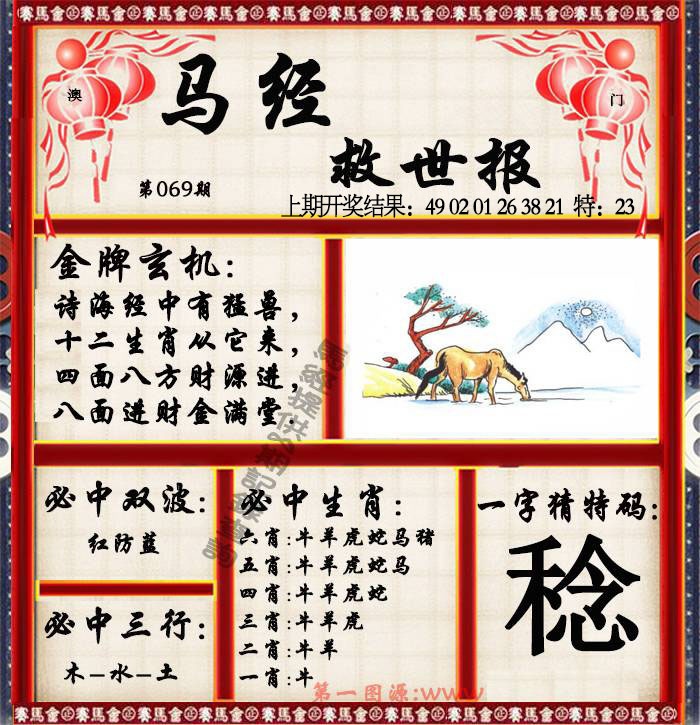 賽馬會 賽馬會 賽馬會 賽馬會 賽馬會 賽馬會 賽馬會 賽馬會 賽馬會
澳
门
马经
救世报
第069期
上期开奖结果：49 02 01 26 38 21 特：23
金牌玄机：
诗海经中有猛兽，
十二生肖从它来，
四面八方财源进，
八面进财金满堂.
必中双波：
红防蓝
必中三行：
木－水－土
必中生肖：
六肖:牛羊虎蛇马猪
五肖:牛羊虎蛇马
四肖:牛羊虎蛇
三肖:牛羊虎
二肖:牛羊
一肖:牛
一字猜特码：
稔
第一图源:www